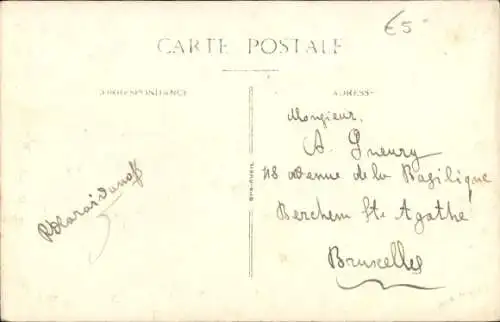 €5
CARTE POSTALE
CORRESPONDANCE
ADRESSE
Monsieur,
A.
118 avenue de la Basilique
Berchem Ste Agathe
Bruxelles